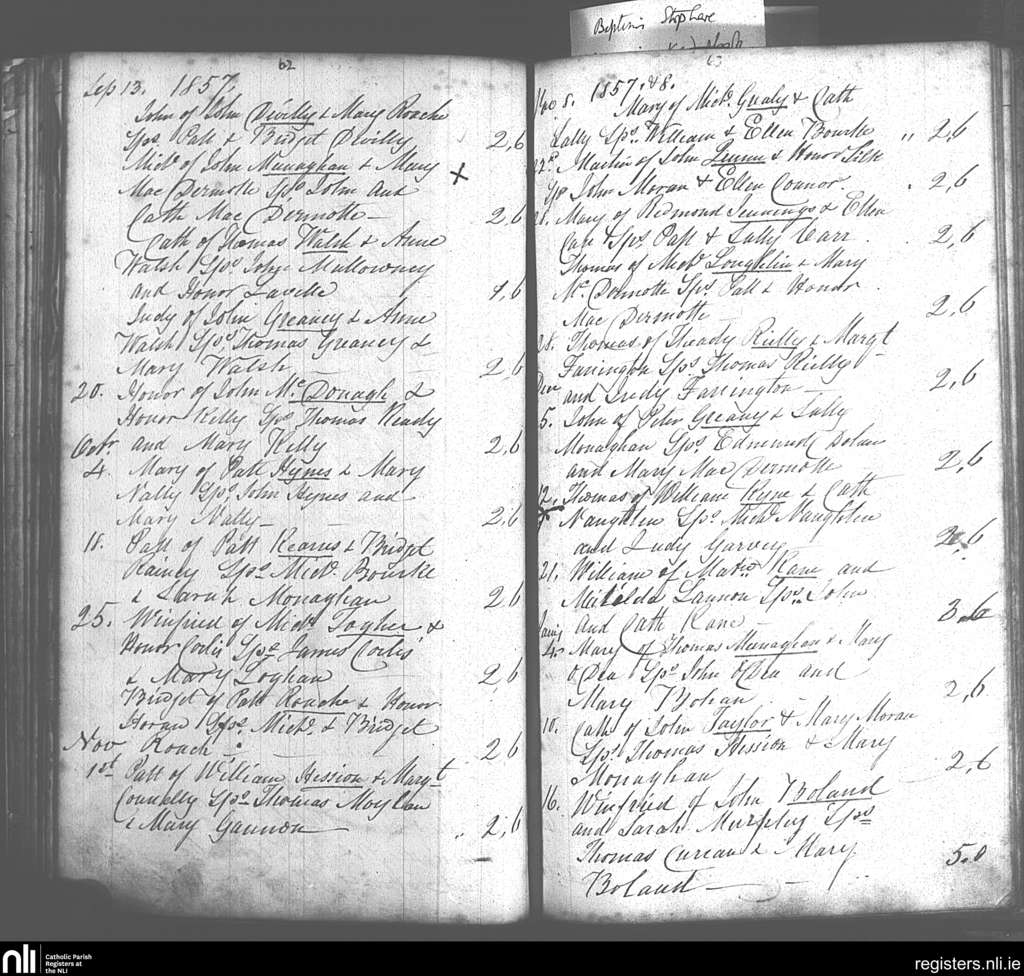 Baptisms
62
Sep 13. 1857.
John of John Divilly & Mary Roache
Sps. Patt & Bridget Divilly 2,6
Mich. of John Monaghan & Mary
Mac Dermotte Sps. John and
Cath Mac Dermotte 2,6
Cath of Thomas Walsh & Anne
Walsh Sps. John Mullowney
and Honor Lavelle
Judy of John Greaney & Anne
Walsh Sps. Thomas Greaney &
Mary Walsh 2,6
20. Honor of John Mc. Donagh &
Honor Kelly Sps. Thomas Ready
Octbr. and Mary Kelly 2,6
4. Mary of Patt Hynes & Mary
Nally Sps. John Hynes and
Mary Nally 2,6
18. Patt of Patt Kearns & Bridget
Rainey Sps. Mich. Bourke
& Sarah Monaghan 2,6
25. Winfried of Mich. Togher &
Honor Sps. James
& Mary Loghan 2,6
Bridget of Patt Roache & Honor
Horan Sps. Mich. & Bridget
Nov Roach 2,6
1st Patt of William Hession & Margt
Connelly Sps. Thomas Moylan
& Mary Gannon 2,6
63
8. 1857.&8.
Mary of Mich. Grealy & Cath
Lally Sps. William & Ellen Bourke " 2,6
22d. Martin of John & Honor Silk
Sp John Moran & Ellen Connor. 2,6
Mary of Redmond Jennings & Ellen
Carr Sps Patt & Lally Carr 2,6
Thomas of Mich. Loughlin & Mary
Mc. Dermotte Sps Patt & Honor
Mac Dermotte 2,6
28. Thomas of Theady Rielly & Margt
Farrington Sps Thomas Rielly
and Judy Farrington 2,6
5. John of Peter Greany & Lally
Monaghan Sps. Edmund Dolan
and Mary Mac Dermotte 2,6
12. Thomas of William Ryne & Cath
Naughten Sps. Mich. Naughten
and Judy Garvey 2,6
21. William of Kane and
Matilda Lannon Sps. John
and Cath Kane 3,6
4. Mary of Thomas Monaghan & Mary
O Dea Sps. John O Dea and
Mary Bohan 2,6
10. Cath of John Taylor & Mary Moran
Sps. Thomas Hession & Mary
Monaghan 2,6
16. Winfried of John Boland
and Sarah Murphy Sps.
Thomas Curean & Mary
Boland 5.0
nli
Catholic Parish
Registers at
the NLI
registers.nli.ie